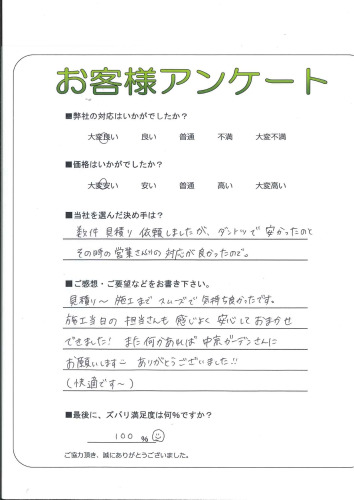 お客様アンケート
■弊社の対応はいかがでしたか？
大変良い 良い 普通 不満 大変不満
■価格はいかがでしたか？
大変安い 安い 普通 高い 大変高い
■当社を選んだ決め手は？
数件 見積り 依頼しましたが、ダントツで 安かったのと
その時の営業さんの対応が良かったので。
■ご感想・ご要望などをお書き下さい。
見積り～施工まで スムーズで 気持ち良かったです。
施工当日の 担当さんも 感じよく 安心して おまかせ
できました! また何かあれば 中京ガーデンさんに
お願いします ありがとうございました!!
(快適です～)
■最後に、ズバリ満足度は何%ですか？
100 %
ご協力頂き、誠にありがとうございました。